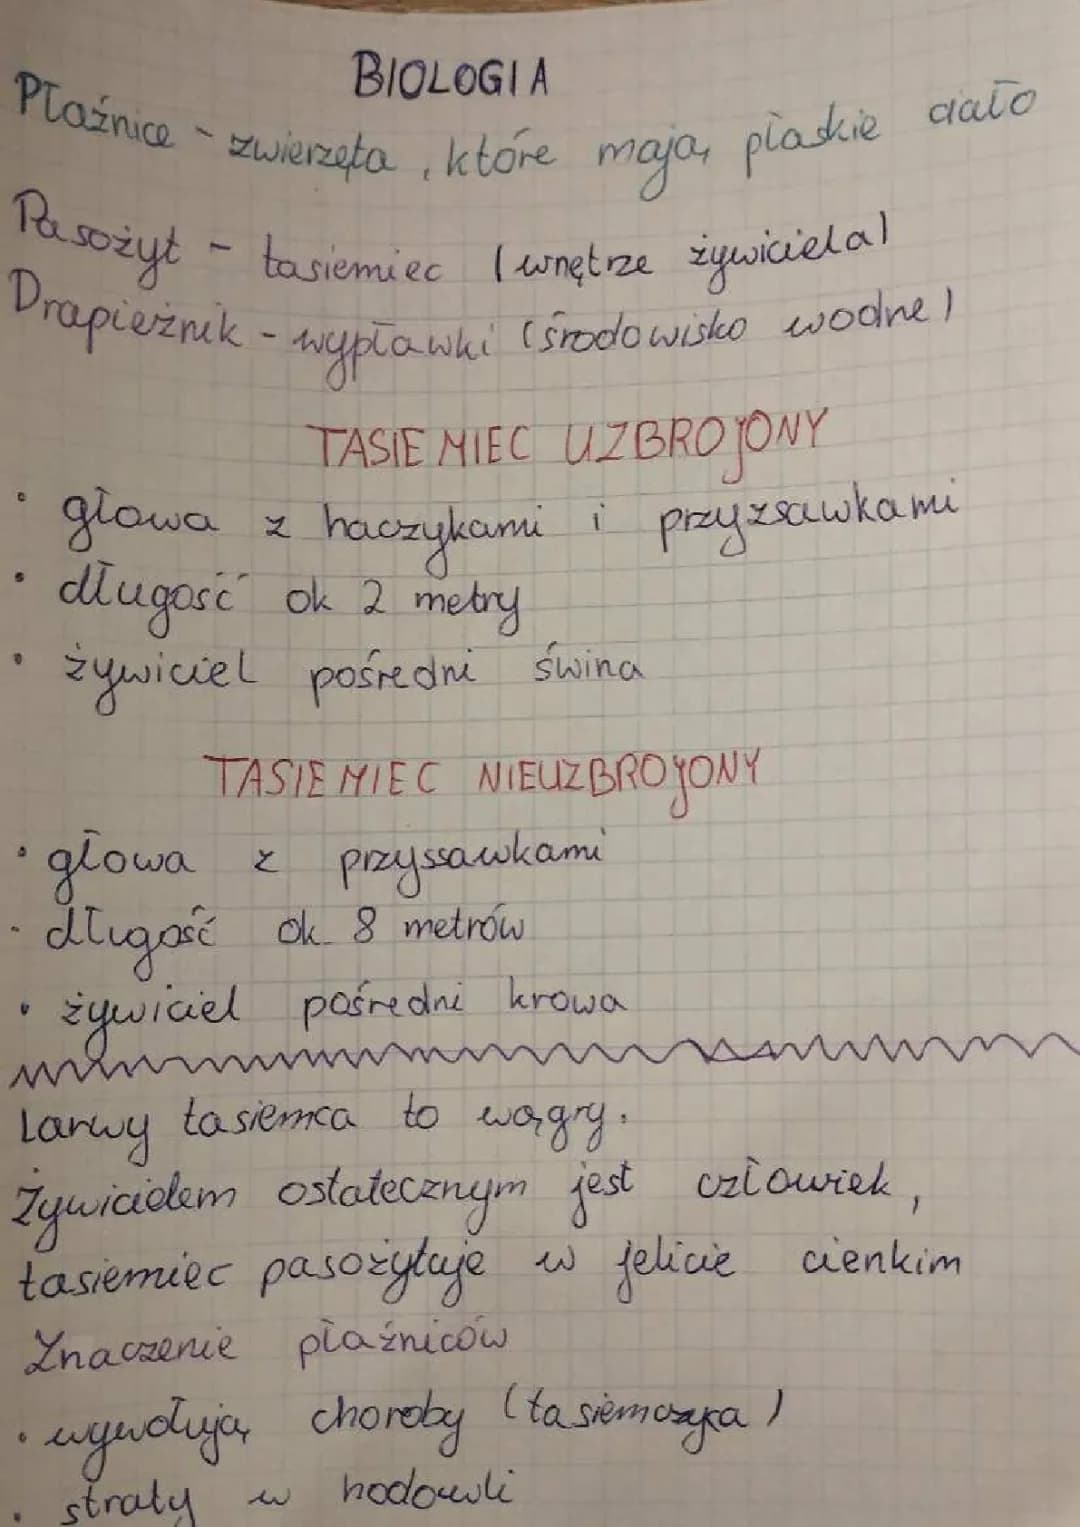 BIOLOGIA
Płaźnice - zwierzęta, które mają płaskie ciało
Pasożyt - tasiemiec (wnętrze żywiciela)
Drapieżnik - wypławki (środowisko wodne)
TASIEMIEC UZBROJONY
• głowa z haczykami i przyzsawkami
• długość ok 2 metry
• żywiciel pośredni świna
TASIEMIEC NIEUZBROJONY
• głowa z przyssawkami
• długość ok. 8 metrów
• żywiciel pośredni krowa
Larwy tasiemca to wągry.
Żywicielem ostatecznym jest człowiek,
tasiemiec pasożytuje w jelicie cienkim
Znaczenie płaźniców
• wywołują choroby (tasiemczyca)
• straty w hodowli